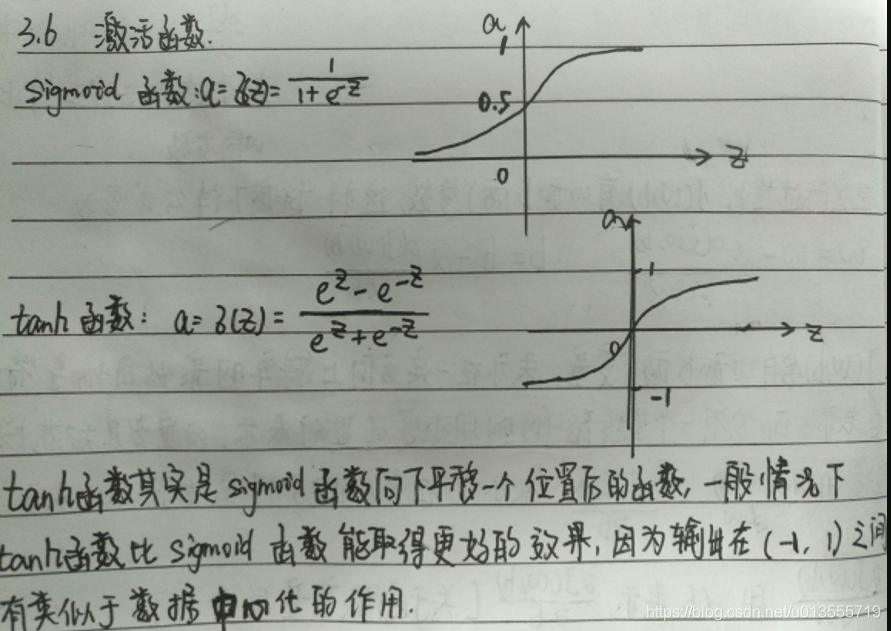 3.6 激活函数.
sigmoid 函数: a = δ(z) = \frac{1}{1+e^{-z}}
a
1
0.5
0
z
tanh 函数: a = δ(z) = \frac{e^z - e^{-z}}{e^z + e^{-z}}
a
1
0
z
-1
tanh函数其实是 sigmoid 函数向下平移一个位置后的函数, 一般情况下
tanh函数比 sigmoid 函数能取得更好的效果, 因为输出在 (-1, 1) 之间
有类似于数据中心化的作用.
https://blog.csdn.net/u013555719